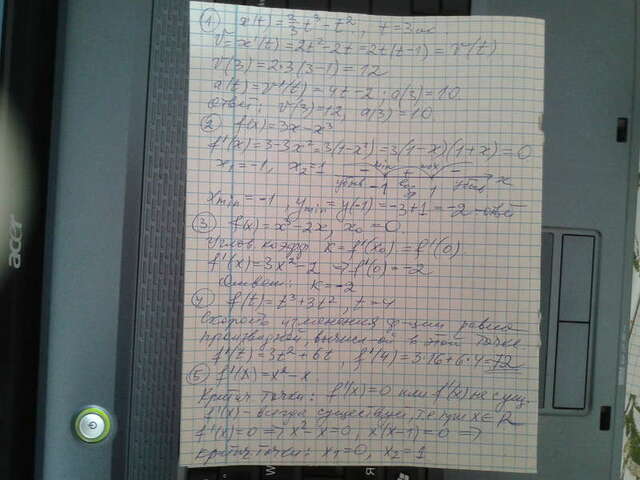 ① x(t) = 2/3 t³ - t², t = 3 c
V = x'(t) = 2t² - 2t = 2t(t-1) = V(t)
V(3) = 2·3(3-1) = 12
a(t) = V'(t) = 4t - 2; a(3) = 10
Ответ: V(3) = 12, a(3) = 10.
② f(x) = 3x - x³
f'(x) = 3 - 3x² = 3(1-x²) = 3(1-x)(1+x) = 0
x₁ = -1, x₂ = 1
- min + max -
убыв -1 1 убыв x
xmin = -1, ymin = y(-1) = -3+1 = -2 - ответ
③ f(x) = x³ - 2x, x₀ = 0.
Углов. коэфф. k = f'(x₀) = f'(0).
f'(x) = 3x² - 2 ⇒ f'(0) = -2
Ответ: k = -2
④ f(t) = t³ + 3t², t = 4
Скорость изменения ф-ции равна
производной, вычисл-ой в этой точке.
f'(t) = 3t² + 6t, f'(4) = 3·16 + 6·4 = 72
⑤ f'(x) = x² - x
Критич. точки: f'(x) = 0 или f'(x) не сущ.
f'(x) - всегда существует, т.е. при x ∈ R
f'(x) = 0 ⇒ x² - x = 0, x(x-1) = 0 ⇒
критич. точки: x₁ = 0, x₂ = 1
acer